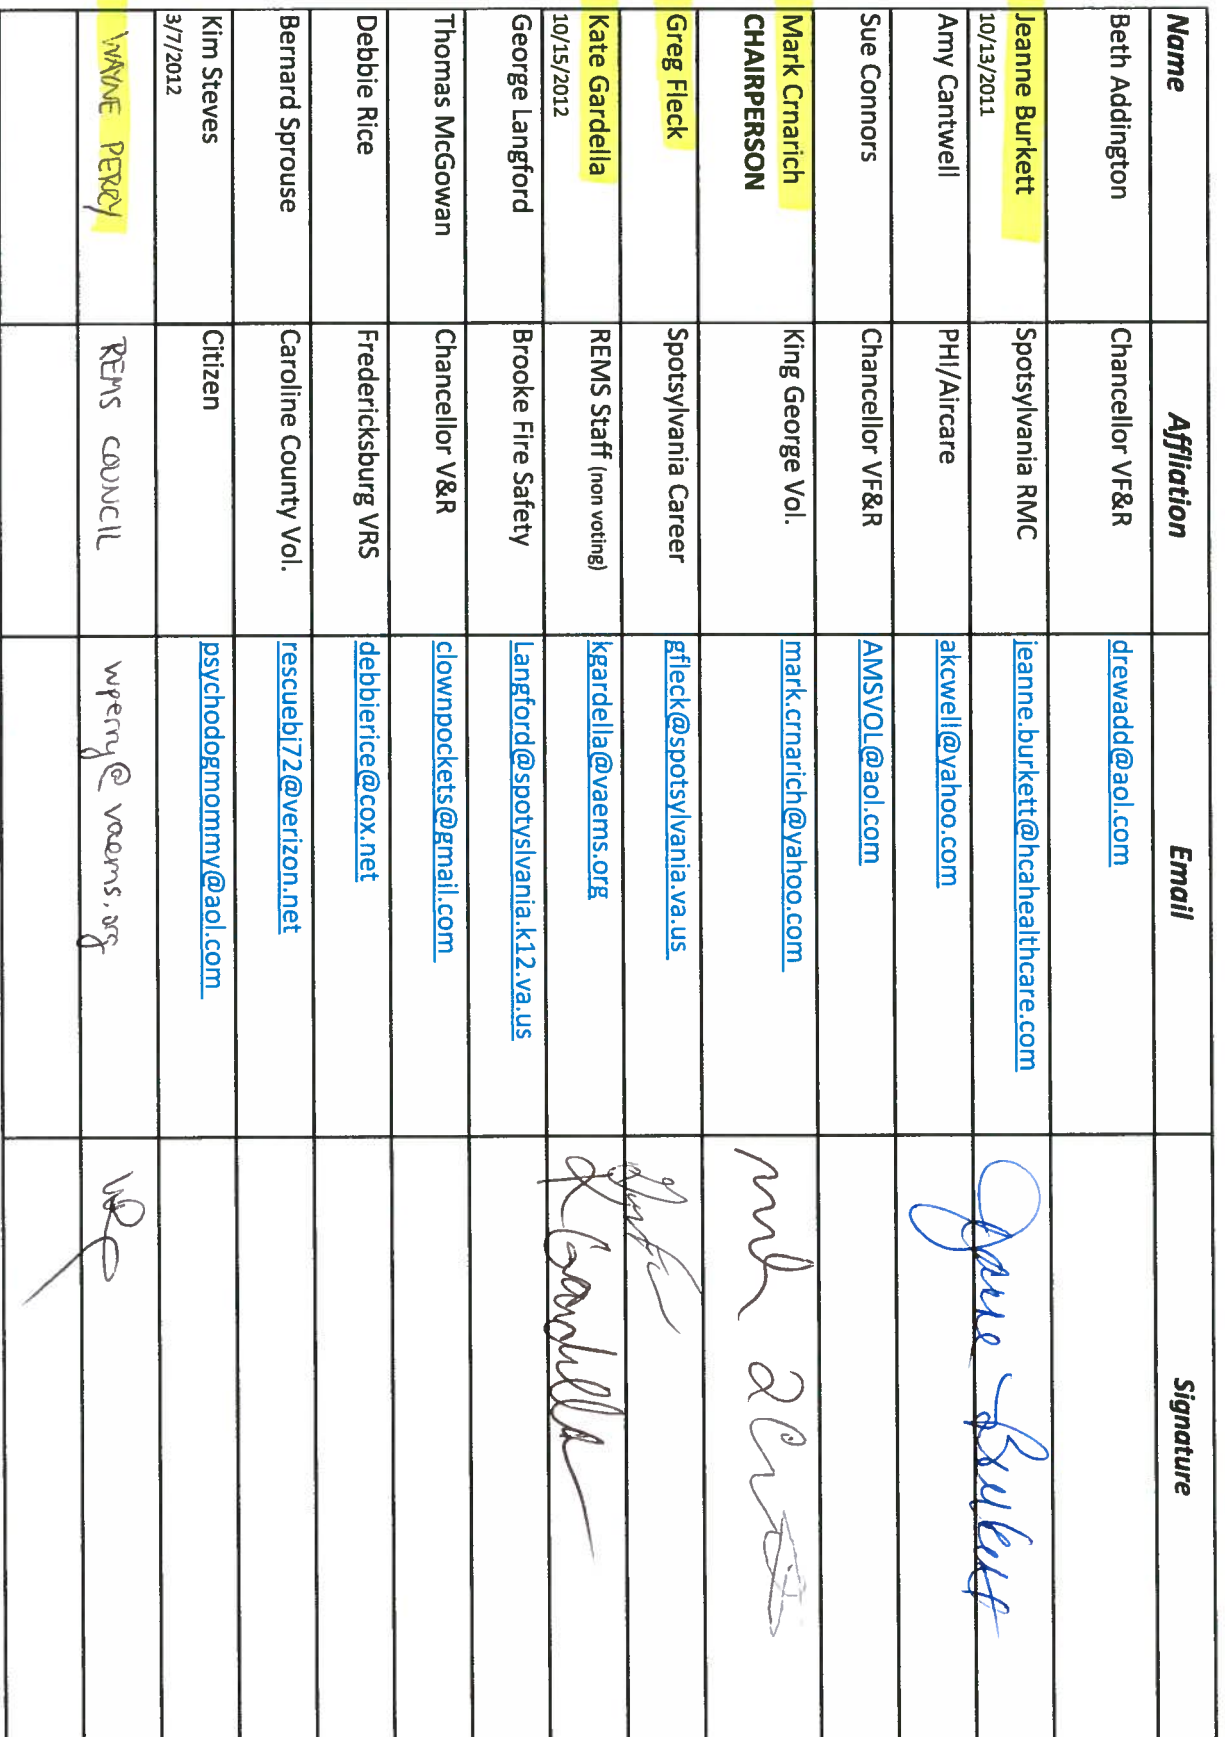 Name Affliation Email Signature
Beth Addington Chancellor VF&R drewadd@aol.com
Jeanne Burkett Spotsylvania RMC jeanne.burkett@hcahealthcare.com Jeanne Burkett
10/13/2011
Amy Cantwell PHI/Aircare akcwell@yahoo.com
Sue Connors Chancellor VF&R AMSVOL@aol.com
Mark Crnarich King George Vol. mark.crnarich@yahoo.com
CHAIRPERSON
Greg Fleck Spotsylvania Career gfleck@spotsylvania.va.us
Kate Gardella REMS Staff (non voting) kgardella@vaems.org K Gardella
10/15/2012
George Langford Brooke Fire Safety Langford@spotyslvania.k12.va.us
Thomas McGowan Chancellor V&R clownpockets@gmail.com
Debbie Rice Fredericksburg VRS debbierice@cox.net
Bernard Sprouse Caroline County Vol. rescuebj72@verizon.net
Kim Steves Citizen psychodogmommy@aol.com
3/7/2012
WAYNE PERRY REMS COUNCIL wperry@vaems.org